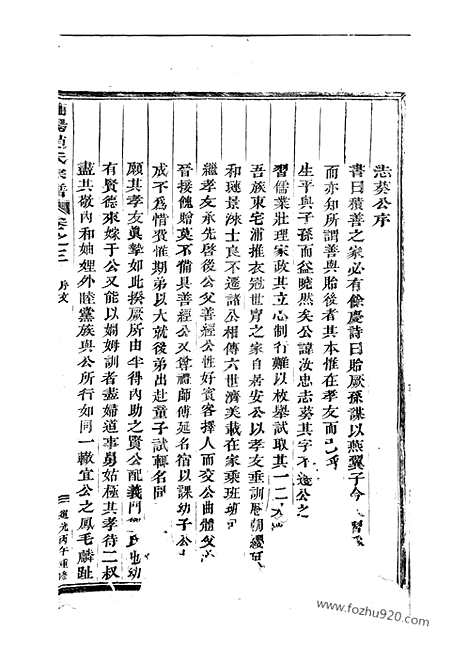 志葵公序
書曰積善之家必有餘慶詩曰貽厥孫謀以燕翼子今習
而亦知所謂善與貽後者其本惟在孝友而已乎
生平與子孫而益曉然矣公諱汝忠志葵其字不
習儒業壯理家政其立心制行難以枚舉試取其一二
吾族東宅浦推衣冠世胄之家自君安公以孝友垂訓歷朝
和璉景淶士良不遜諸公相傳六世濟美載在家乘班班可
繼孝友承先啓後公父善經公性好賓客擇人而交公曲體父
晉接餽贈莫不備具善經公又尊禮師傅延名宿以課幼子公
成不爲惜費惟期弟以大就後弟出赴童子試輒名冠
願其孝友眞摯如此揆厥所由半得內助之賢公配義門氏也幼
有賢德來嫁于公又能以嫺姆訓者盡婦道事舅姑極其孝待二叔
盡其敬內和妯娌外睦黨族與公所行如同一轍宜公之鳳毛麟趾
氏宗譜 卷之三 序文
道光丙午重修
www.fozhu920.com